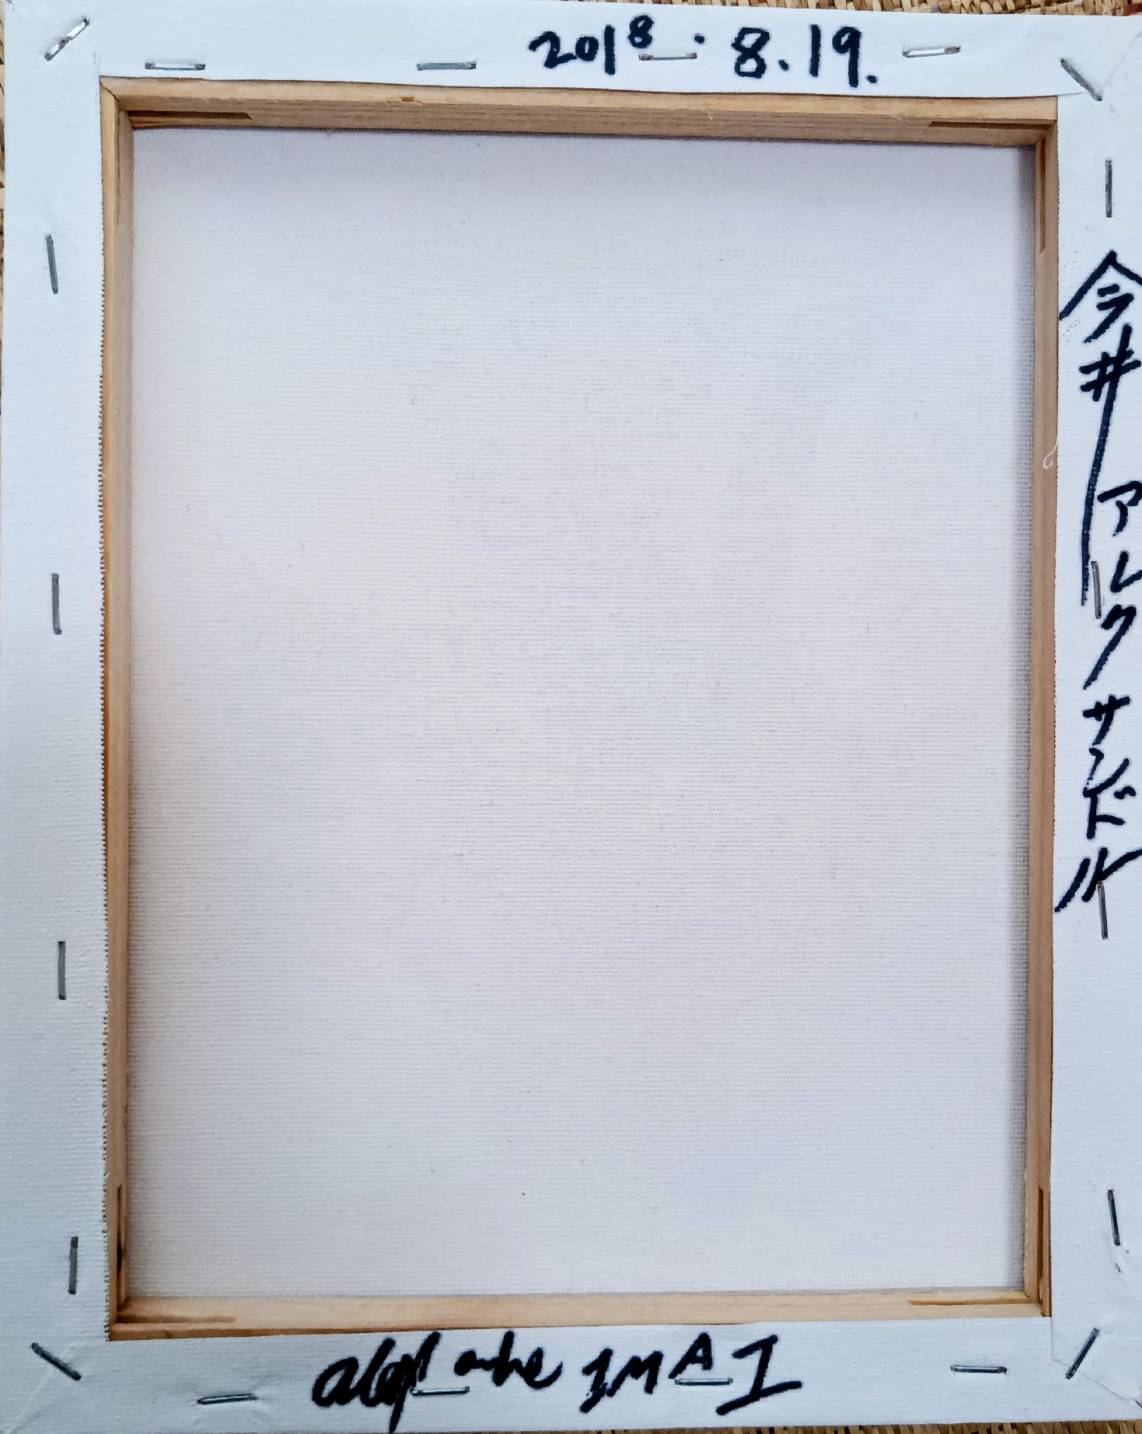 2018.8.19.
今井 アレクサンドル
IMAI